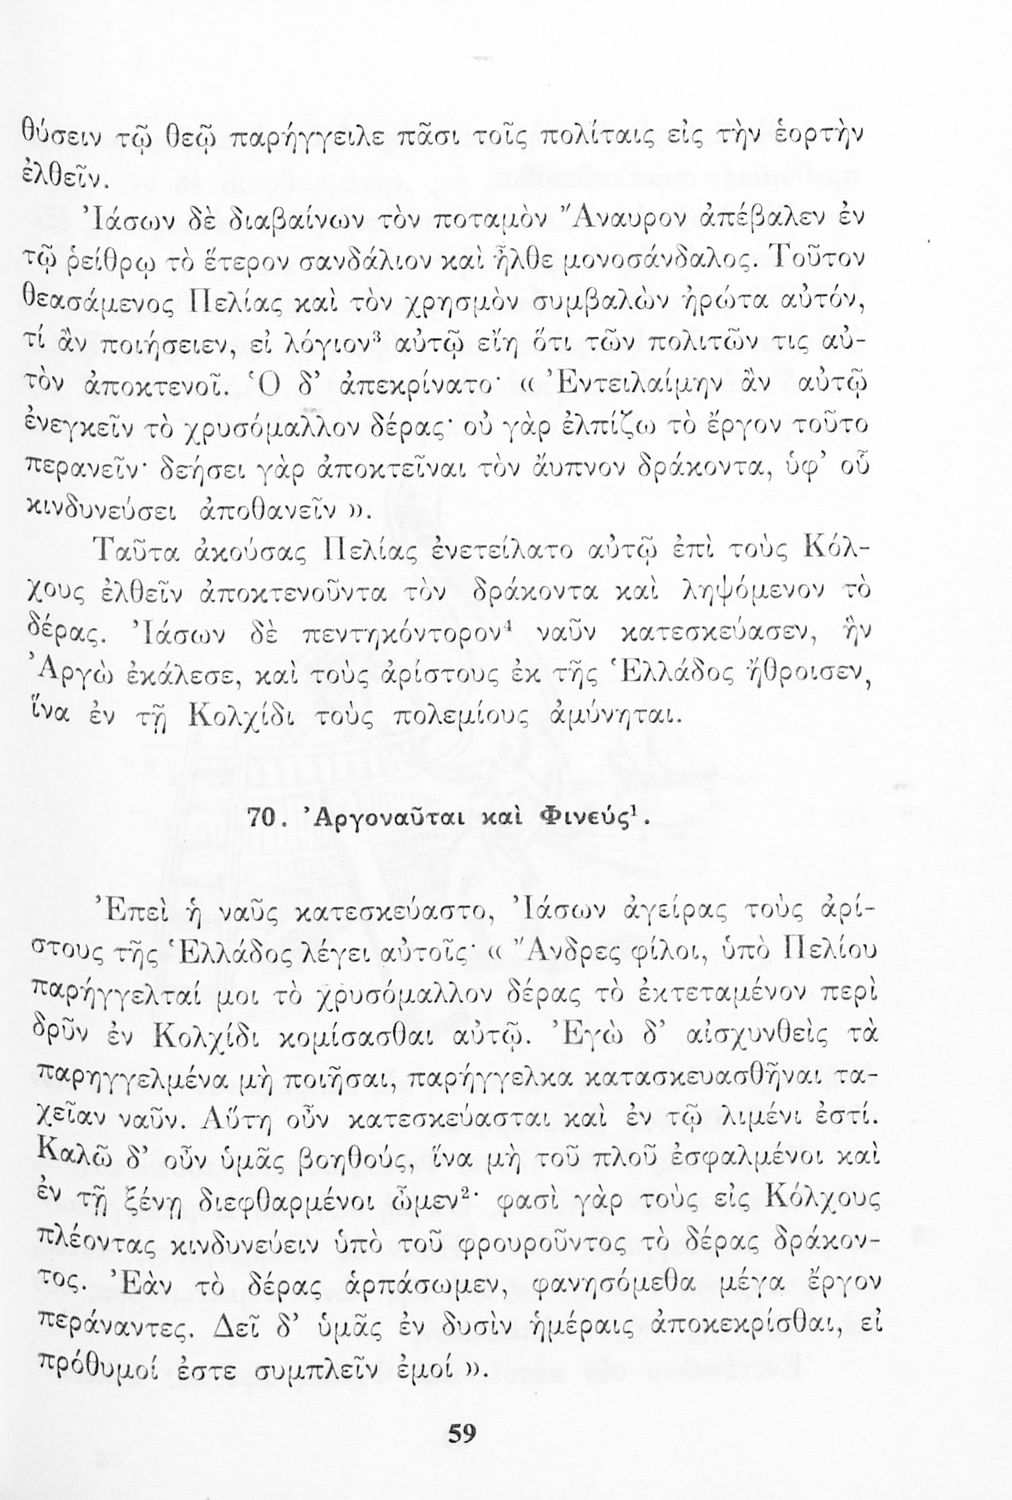 θύσειν τῷ θεῷ παρήγγειλε πᾶσι τοῖς πολίταις εἰς τὴν ἑορτὴν
ἐλθεῖν.
Ἰάσων δὲ διαβαίνων τὸν ποταμὸν Ἄναυρον ἀπέβαλεν ἐν
τῷ ῥείθρῳ τὸ ἕτερον σανδάλιον καὶ ἦλθε μονοσάνδαλος. Τοῦτον
θεασάμενος Πελίας καὶ τὸν χρησμὸν συμβαλὼν ἠρώτα αὐτόν,
τί ἂν ποιήσειεν, εἰ λόγιον³ αὐτῷ εἴη ὅτι τῶν πολιτῶν τις αὐ-
τὸν ἀποκτενοῖ. Ὁ δ' ἀπεκρίνατο· « Ἐντειλαίμην ἂν αὐτῷ
ἐνεγκεῖν τὸ χρυσόμαλλον δέρας· οὐ γὰρ ἐλπίζω τὸ ἔργον τοῦτο
περανεῖν· δεήσει γὰρ ἀποκτεῖναι τὸν ἄυπνον δράκοντα, ὑφ' οὗ
κινδυνεύσει ἀποθανεῖν ».
Ταῦτα ἀκούσας Πελίας ἐνετείλατο αὐτῷ ἐπὶ τοὺς Κόλ-
χους ἐλθεῖν ἀποκτενοῦντα τὸν δράκοντα καὶ ληψόμενον τὸ
δέρας. Ἰάσων δὲ πεντηκόντορον⁴ ναῦν κατεσκεύασεν, ἣν
Ἀργὼ ἐκάλεσε, καὶ τοὺς ἀρίστους ἐκ τῆς Ἑλλάδος ἤθροισεν,
ἵνα ἐν τῇ Κολχίδι τοὺς πολεμίους ἀμύνηται.
70. Ἀργοναῦται καὶ Φινεύς¹.
Ἐπεὶ ἡ ναῦς κατεσκεύαστο, Ἰάσων ἀγείρας τοὺς ἀρί-
στους τῆς Ἑλλάδος λέγει αὐτοῖς· « Ἄνδρες φίλοι, ὑπὸ Πελίου
παρήγγελταί μοι τὸ χρυσόμαλλον δέρας τὸ ἐκτεταμένον περὶ
δρῦν ἐν Κολχίδι κομίσασθαι αὐτῷ. Ἐγὼ δ' αἰσχυνθεὶς τὰ
παρηγγελμένα μὴ ποιῆσαι, παρήγγελκα κατασκευασθῆναι τα-
χεῖαν ναῦν. Αὕτη οὖν κατεσκεύασται καὶ ἐν τῷ λιμένι ἐστί.
Καλῶ δ' οὖν ὑμᾶς βοηθούς, ἵνα μὴ τοῦ πλοῦ ἐσφαλμένοι καὶ
ἐν τῇ ξένῃ διεφθαρμένοι ὦμεν²· φασὶ γὰρ τοὺς εἰς Κόλχους
πλέοντας κινδυνεύειν ὑπὸ τοῦ φρουροῦντος τὸ δέρας δράκον-
τος. Ἐὰν τὸ δέρας ἁρπάσωμεν, φανησόμεθα μέγα ἔργον
περάναντες. Δεῖ δ' ὑμᾶς ἐν δυσὶν ἡμέραις ἀποκεκρίσθαι, εἰ
πρόθυμοί ἐστε συμπλεῖν ἐμοί ».
59